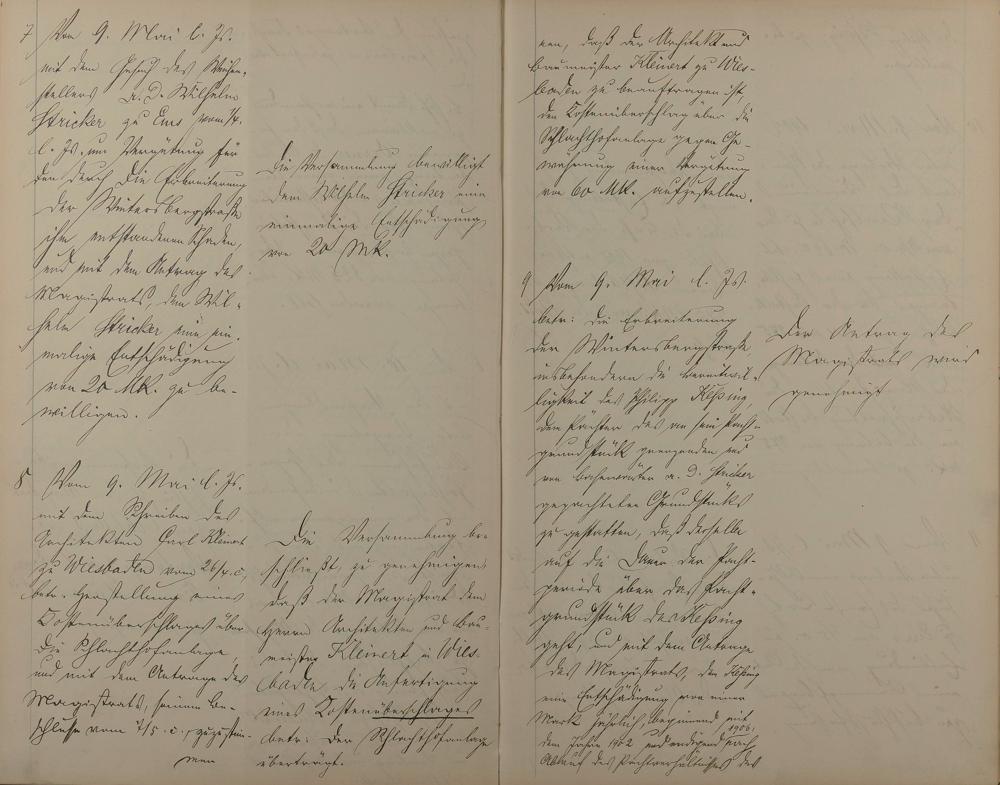 7 Vom 9. Mai l. Js.
mit dem Gesuch des Weichen-
stellers a. D. Wilhelm
Stricker zu Ems vom
l. Js. um Vergütung für
den durch die Erbreiterung
der Wintersbergstraße
ihm entstandenen Schaden,
und mit dem Antrag des
Magistrats, dem Wil-
helm Stricker eine ein-
malige Entschädigung
von 20 Mk. zu be-
willigen.
Die Versammlung bewilligt
dem Wilhelm Stricker eine
einmalige Entschädigung
von 20 Mk.
8 Vom 9. Mai l. Js.
mit dem Schreiben des
Architekten Carl Kleinert
zu Wiesbaden vom 26/4. c.,
betr. Herstellung eines
Kostenüberschlages über
die Schlachthofanlage
und mit dem Antrage des
Magistrats, seinem Be-
schlusse vom 7/5. c., zuzustim-
men
Die Versammlung be-
schließt, zu genehmigen
daß der Magistrat dem
Herrn Architekten und Bau-
meister Kleinert in Wies-
baden die Anfertigung
eines Kostenüberschlages
betr. der Schlachthofanlage
überträgt.
nen, daß der Architekt und
Baumeister Kleinert zu Wies-
baden zu beauftragen ist,
den Kostenüberschlag über die
Schlachthofanlage gegen Ge-
währung einer Vergütung
von 60 Mk. aufzustellen.
9 Vom 9. Mai l. Js.
betr: die Erbreiterung
der Wintersbergstraße,
insbesondere die Bereitwil-
ligkeit des Philipp
dem Pächter des an sein Pacht-
grundstück grenzenden und
von a. D. Stricker
gepachteten Grundstücks
zu gestatten, daß derselbe
auf die Dauer der Pacht-
periode über das Pacht-
grundstück des
geht, und mit dem Antrage
des Magistrats, dem
eine Entschädigung von einer
Mark jährlich, beginnend mit
dem Jahre 1902 und endigend nach 1906.
Ablauf des Pachtverhältnisses des
Der Antrag des
Magistrats wird
genehmigt